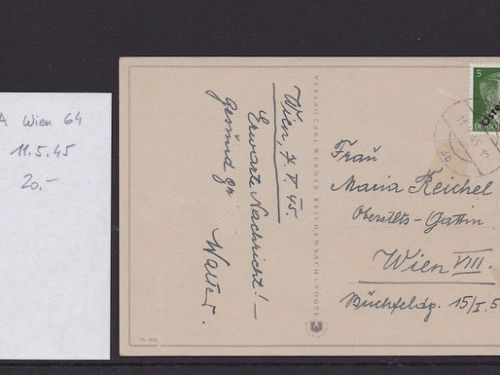 A Wien 64
11.5.45
20.-
Wien, 7. V. 45.
Erwarte Nachricht! —
Gesund
Walter.
VERLAG CARL WERNER, REICHENBACH-VOGTL.
5
Öste
Frau
Maria Reichel
Oberstlts-Gattin
Wien VIII.
Buchfeldg. 15/I.5